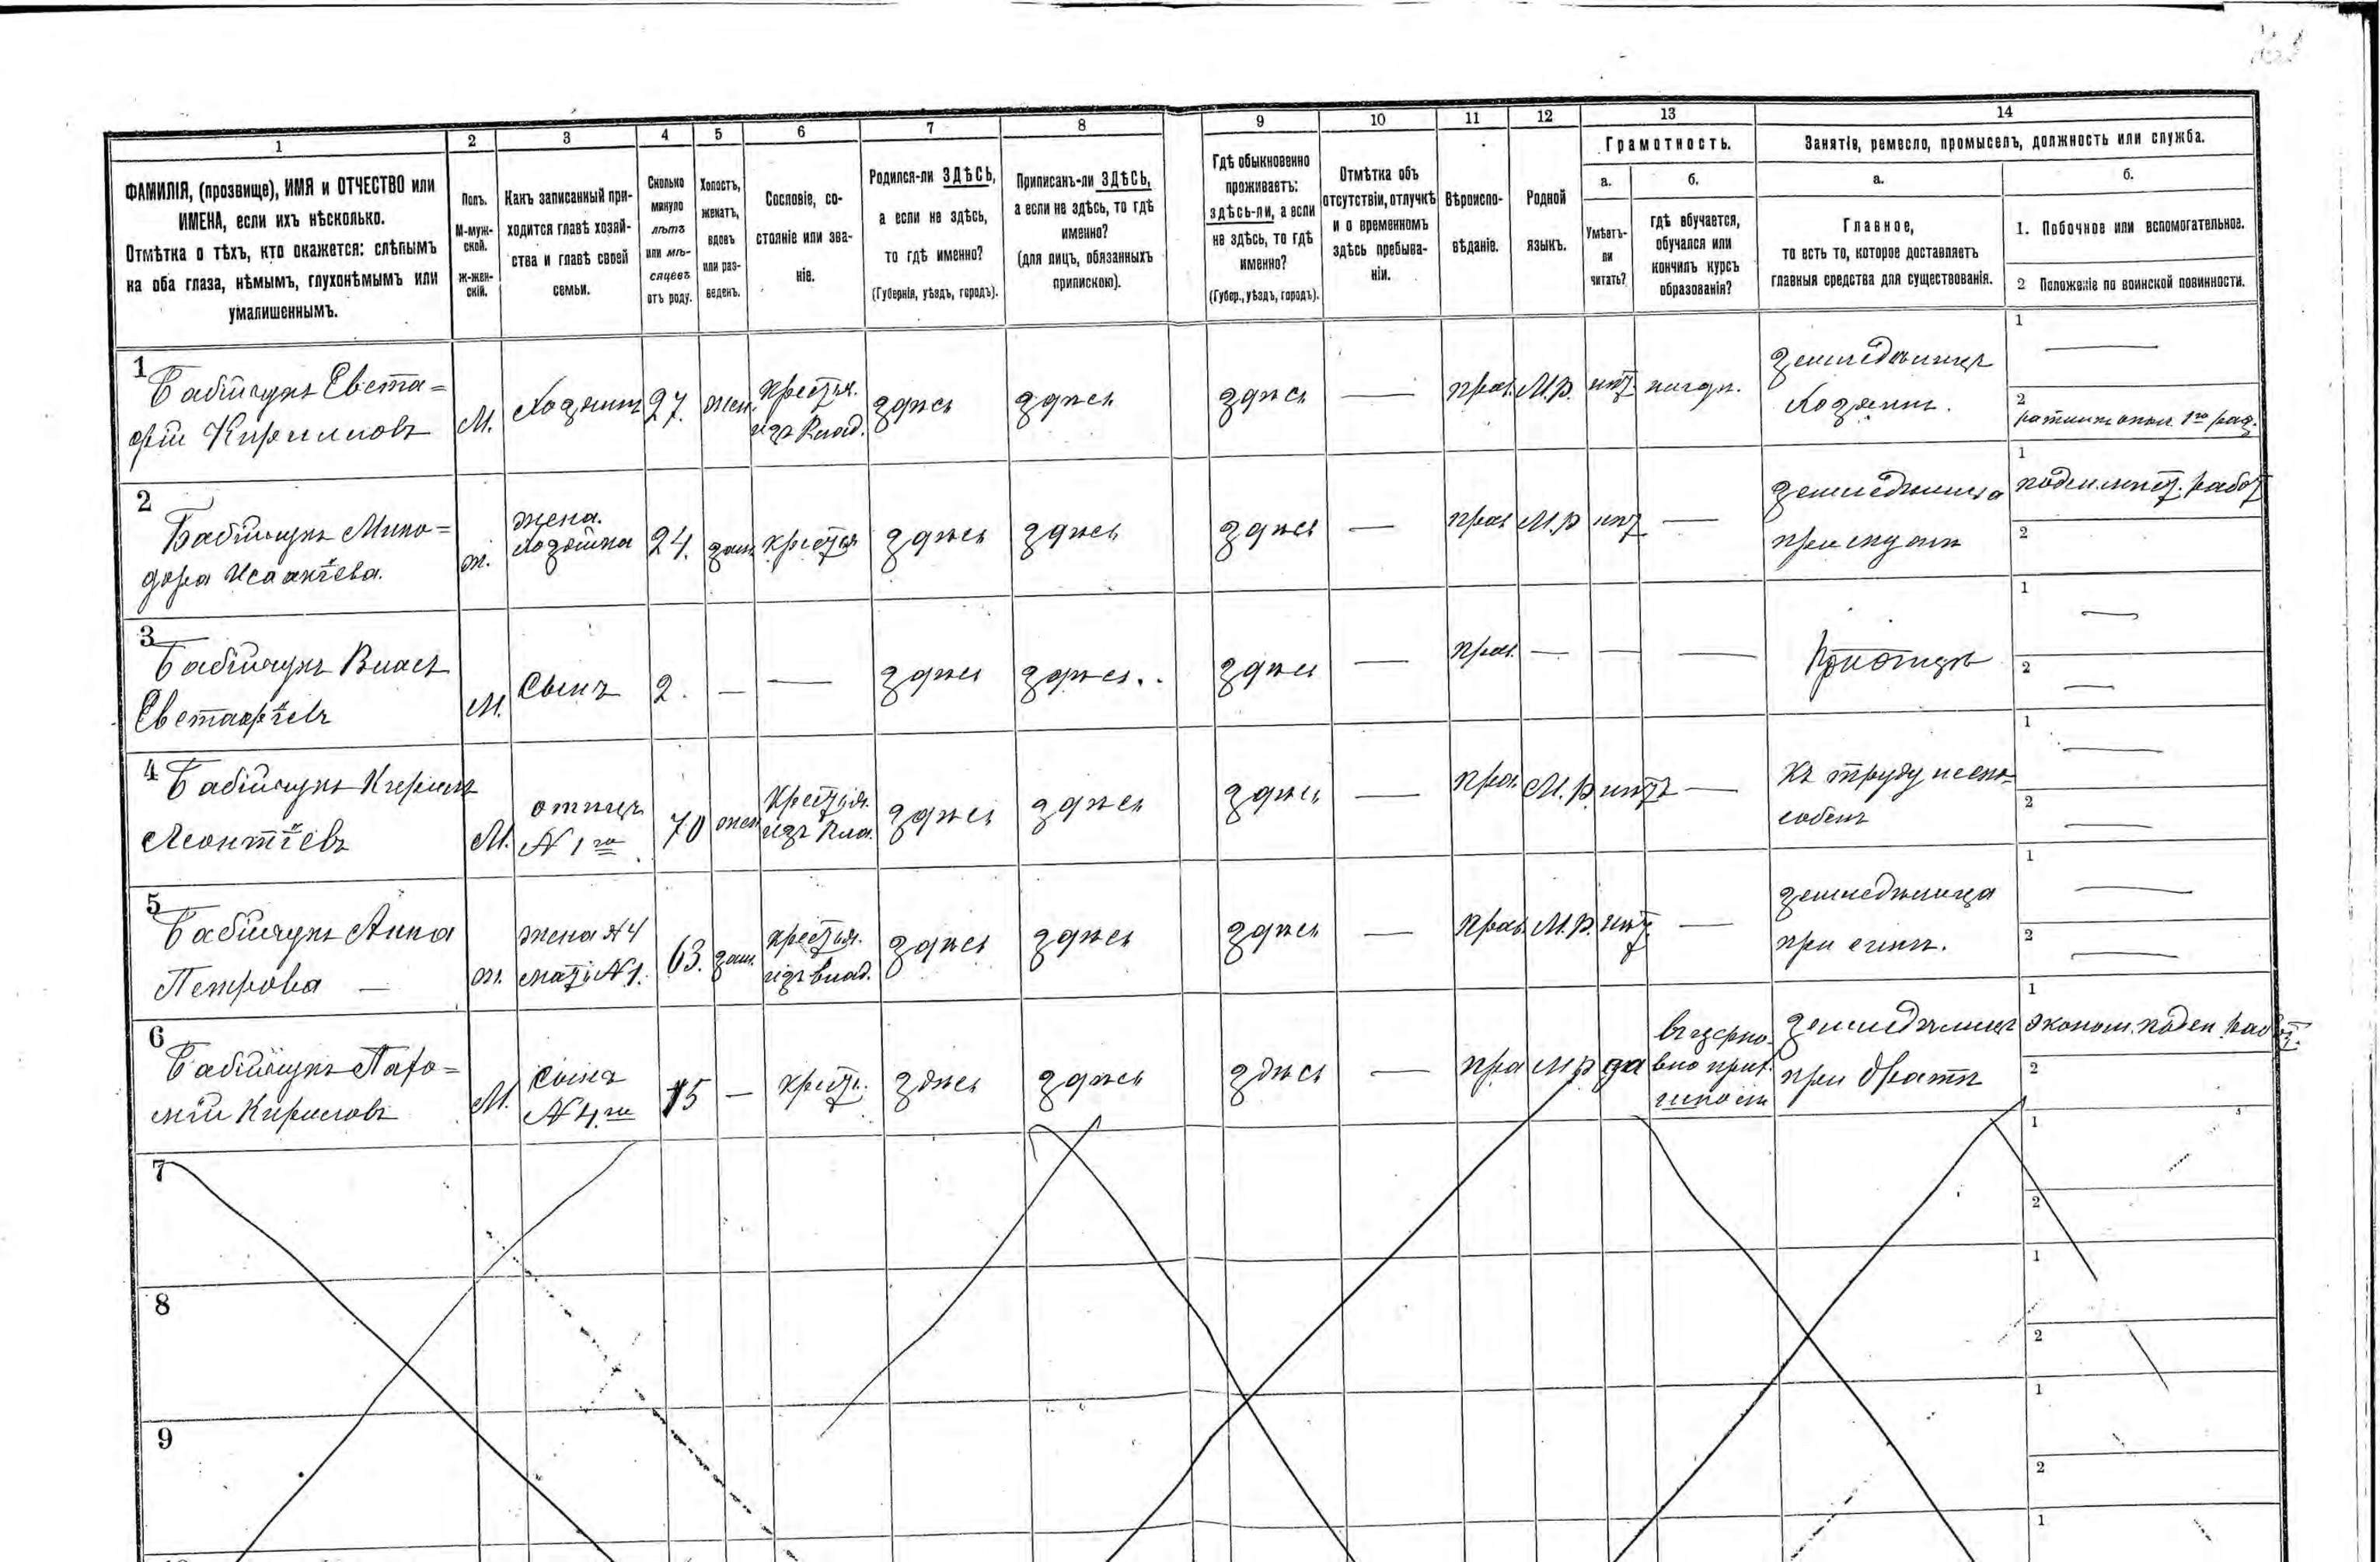 1
2
3
4
5
6
7
8
9
10
11
12
13
14
ФАМИЛІЯ, (прозвище), ИМЯ и ОТЧЕСТВО или
ИМЕНА, если ихъ нѣсколько.
Отмѣтка о тѣхъ, кто окажется: слѣпымъ
на оба глаза, нѣмымъ, глухонѣмымъ или
умалишеннымъ.
Полъ.
М-муж-
ской.
Ж-жен-
скій.
Какъ записанный при-
ходится главѣ хозяй-
ства и главѣ своей
семьи.
Сколько
минуло
лѣтъ
или мѣ-
сяцевъ
отъ роду.
Холостъ,
женатъ,
вдовъ
или раз-
веденъ.
Сословіе, со-
стояніе или зва-
ніе.
Родился-ли ЗДѢСЬ,
а если не здѣсь,
то гдѣ именно?
(Губернія, уѣздъ, городъ).
Приписанъ-ли ЗДѢСЬ,
а если не здѣсь, то гдѣ
именно?
(для лицъ, обязанныхъ
припискою).
Гдѣ обыкновенно
проживаетъ:
здѣсь-ли, а если
не здѣсь, то гдѣ
именно?
(Губер., уѣздъ, городъ).
Отмѣтка объ
отсутствіи, отлучкѣ
и о временномъ
здѣсь пребыва-
ніи.
Вѣроиспо-
вѣданіе.
Родной
языкъ.
Грамотность.
а.
Умѣетъ-
ли
читать?
б.
гдѣ обучается,
обучался или
кончилъ курсъ
образованія?
Занятія, ремесло, промыселъ, должность или служба.
а.
Главное,
то есть то, которое доставляетъ
главныя средства для существованія.
б.
1. Побочное или вспомогательное.
2 Положеніе по воинской повинности.
1
Бабійчукъ Евста=
фій Кириловъ
М.
Хозяинъ
27.
жен.
крестья.
изъ влад.
здѣсь
здѣсь
здѣсь
—
прав.
М.Р.
нѣт.
нигдѣ.
земледѣлецъ
Хозяинъ.
1
—
2
ратникъ опол. 1го раз.
2
Бабійчукъ Мино=
дора Исаакіева.
ж.
жена.
хозяина
24.
зам.
крестья
здѣсь
здѣсь
здѣсь
—
прав
М.Р
нѣт
—
земледѣлица
при мужѣ
1
поден. работ
2
3
Бабійчукъ Власъ
Евстафіевъ
М.
Сынъ
2.
—
—
здѣсь
здѣсь..
здѣсь
—
прав.
—
—
—
При отцѣ
1
—
2
—
4
Бабійчукъ Кирилъ
Леонтіевъ
М.
отецъ
№ 1го
70
жен
крестья.
изъ вла.
здѣсь
здѣсь
здѣсь
—
прав.
М.Р
нѣтъ
—
Къ труду неспо-
собенъ
1
—
2
—
5
Бабійчукъ Анна
Петрова —
ж.
жена №4
мать №1.
63.
зам.
крестья.
изъ влад.
здѣсь
здѣсь
здѣсь
—
прав
М.Р.
нѣт.
—
земледѣлица
при сынѣ.
1
—
2
—
6
Бабійчукъ Пафо=
мій Кириловъ
М.
Сынъ
№ 4го
15
—
крест.
здѣсь
здѣсь
здѣсь
—
пра
М.Р
да
въ церко-
вно прих.
земледѣлецъ
при братѣ
1
эконом. поден. работ.
2
7
1
2
8
1
2
9
1
2
1